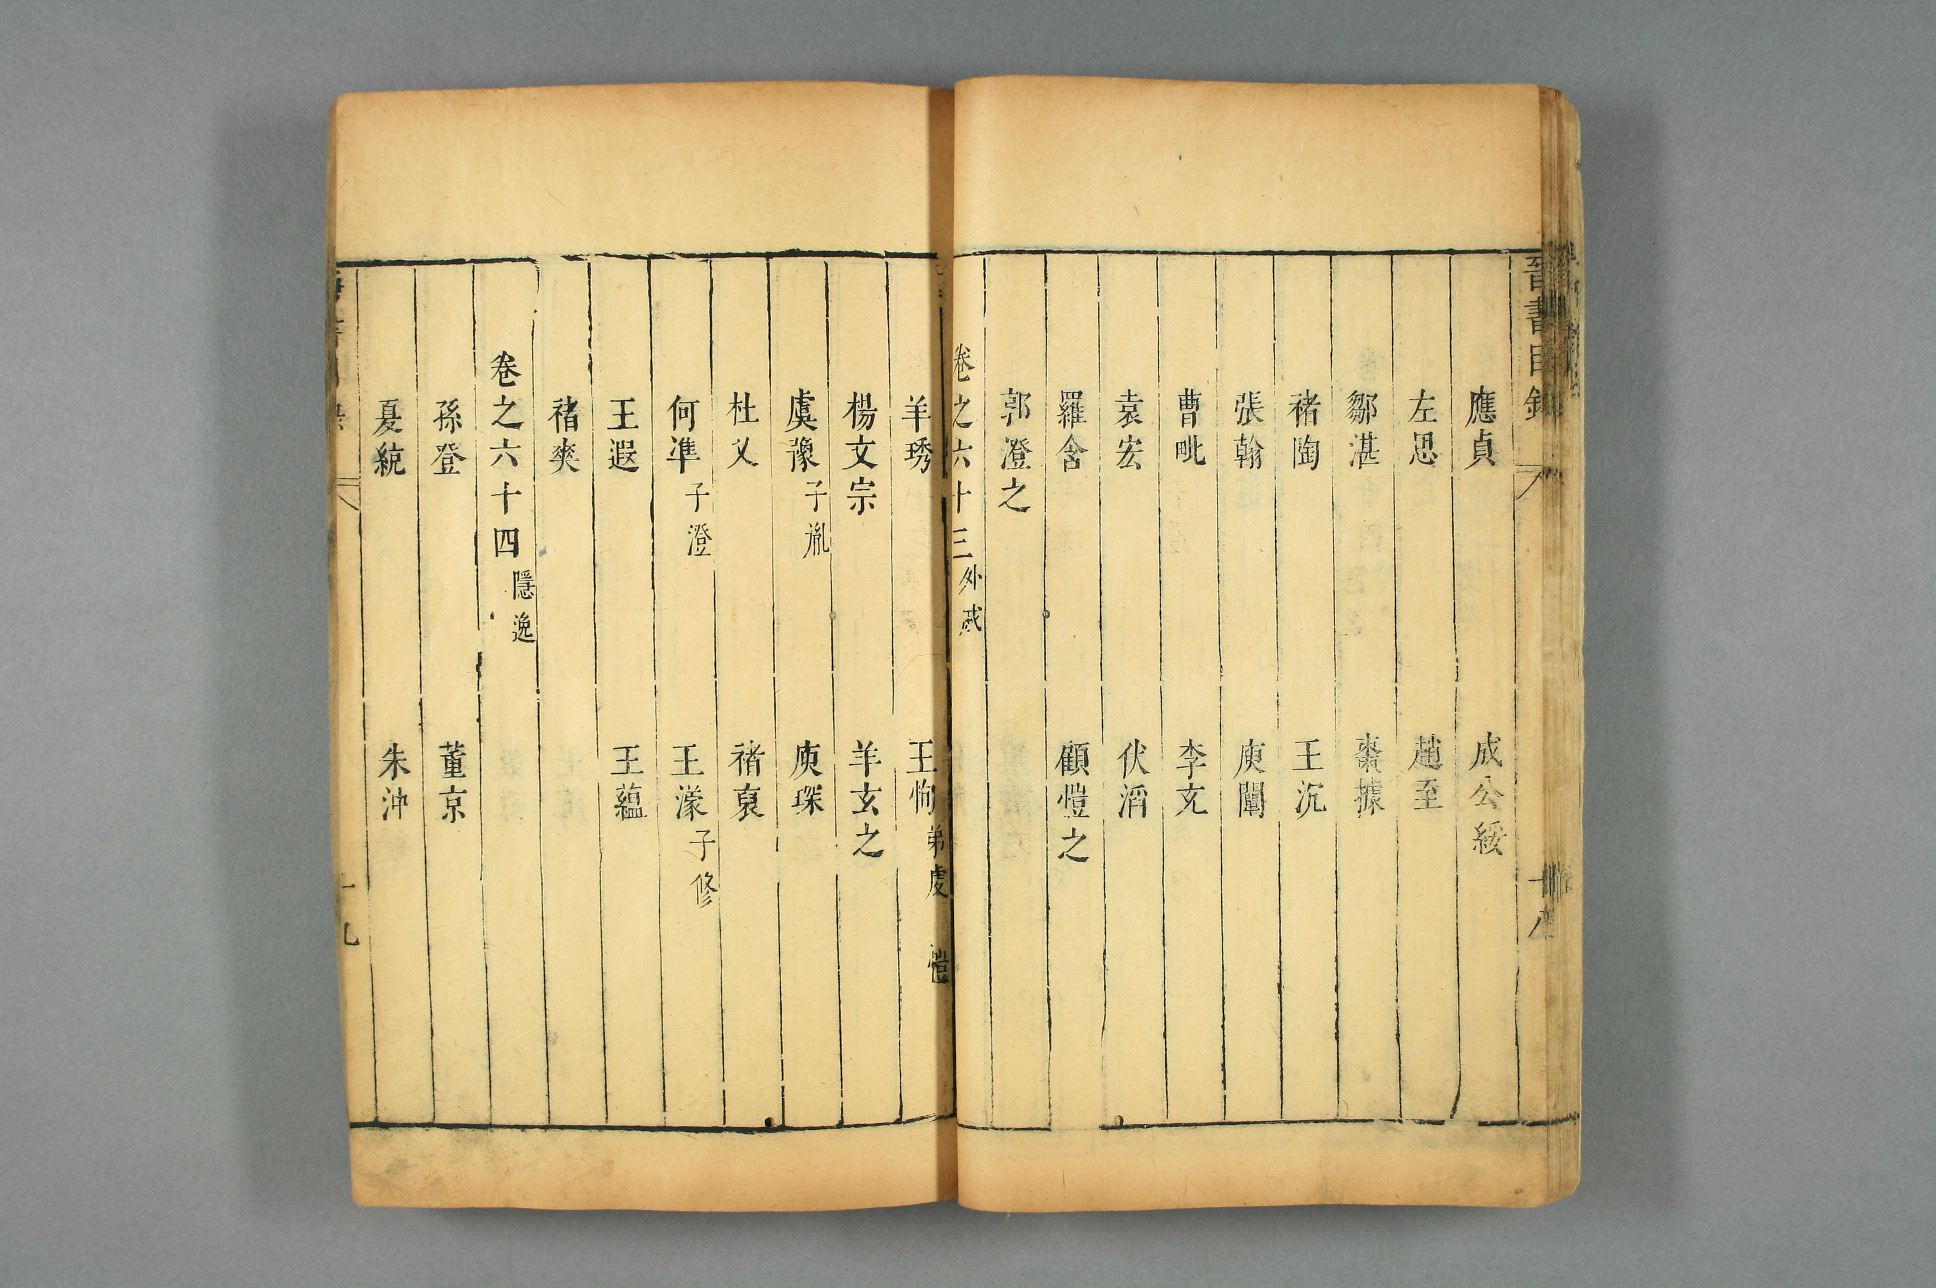 晉書目錄
應貞 成公綏
左思 趙至
鄒湛 棗據
褚陶 王沉
張翰 庾闡
曹毗 李充
袁宏 伏滔
羅含 顧愷之
郭澄之
卷之六十三 外戚
十八
羊琇 王恂 弟虔 愷
楊文宗 羊玄之
虞豫 子胤 庾琛
杜乂 褚裒
何準 子澄 王濛 子修
王遐 王蘊
褚爽
卷之六十四 隱逸
孫登 董京
夏統 朱沖
十九